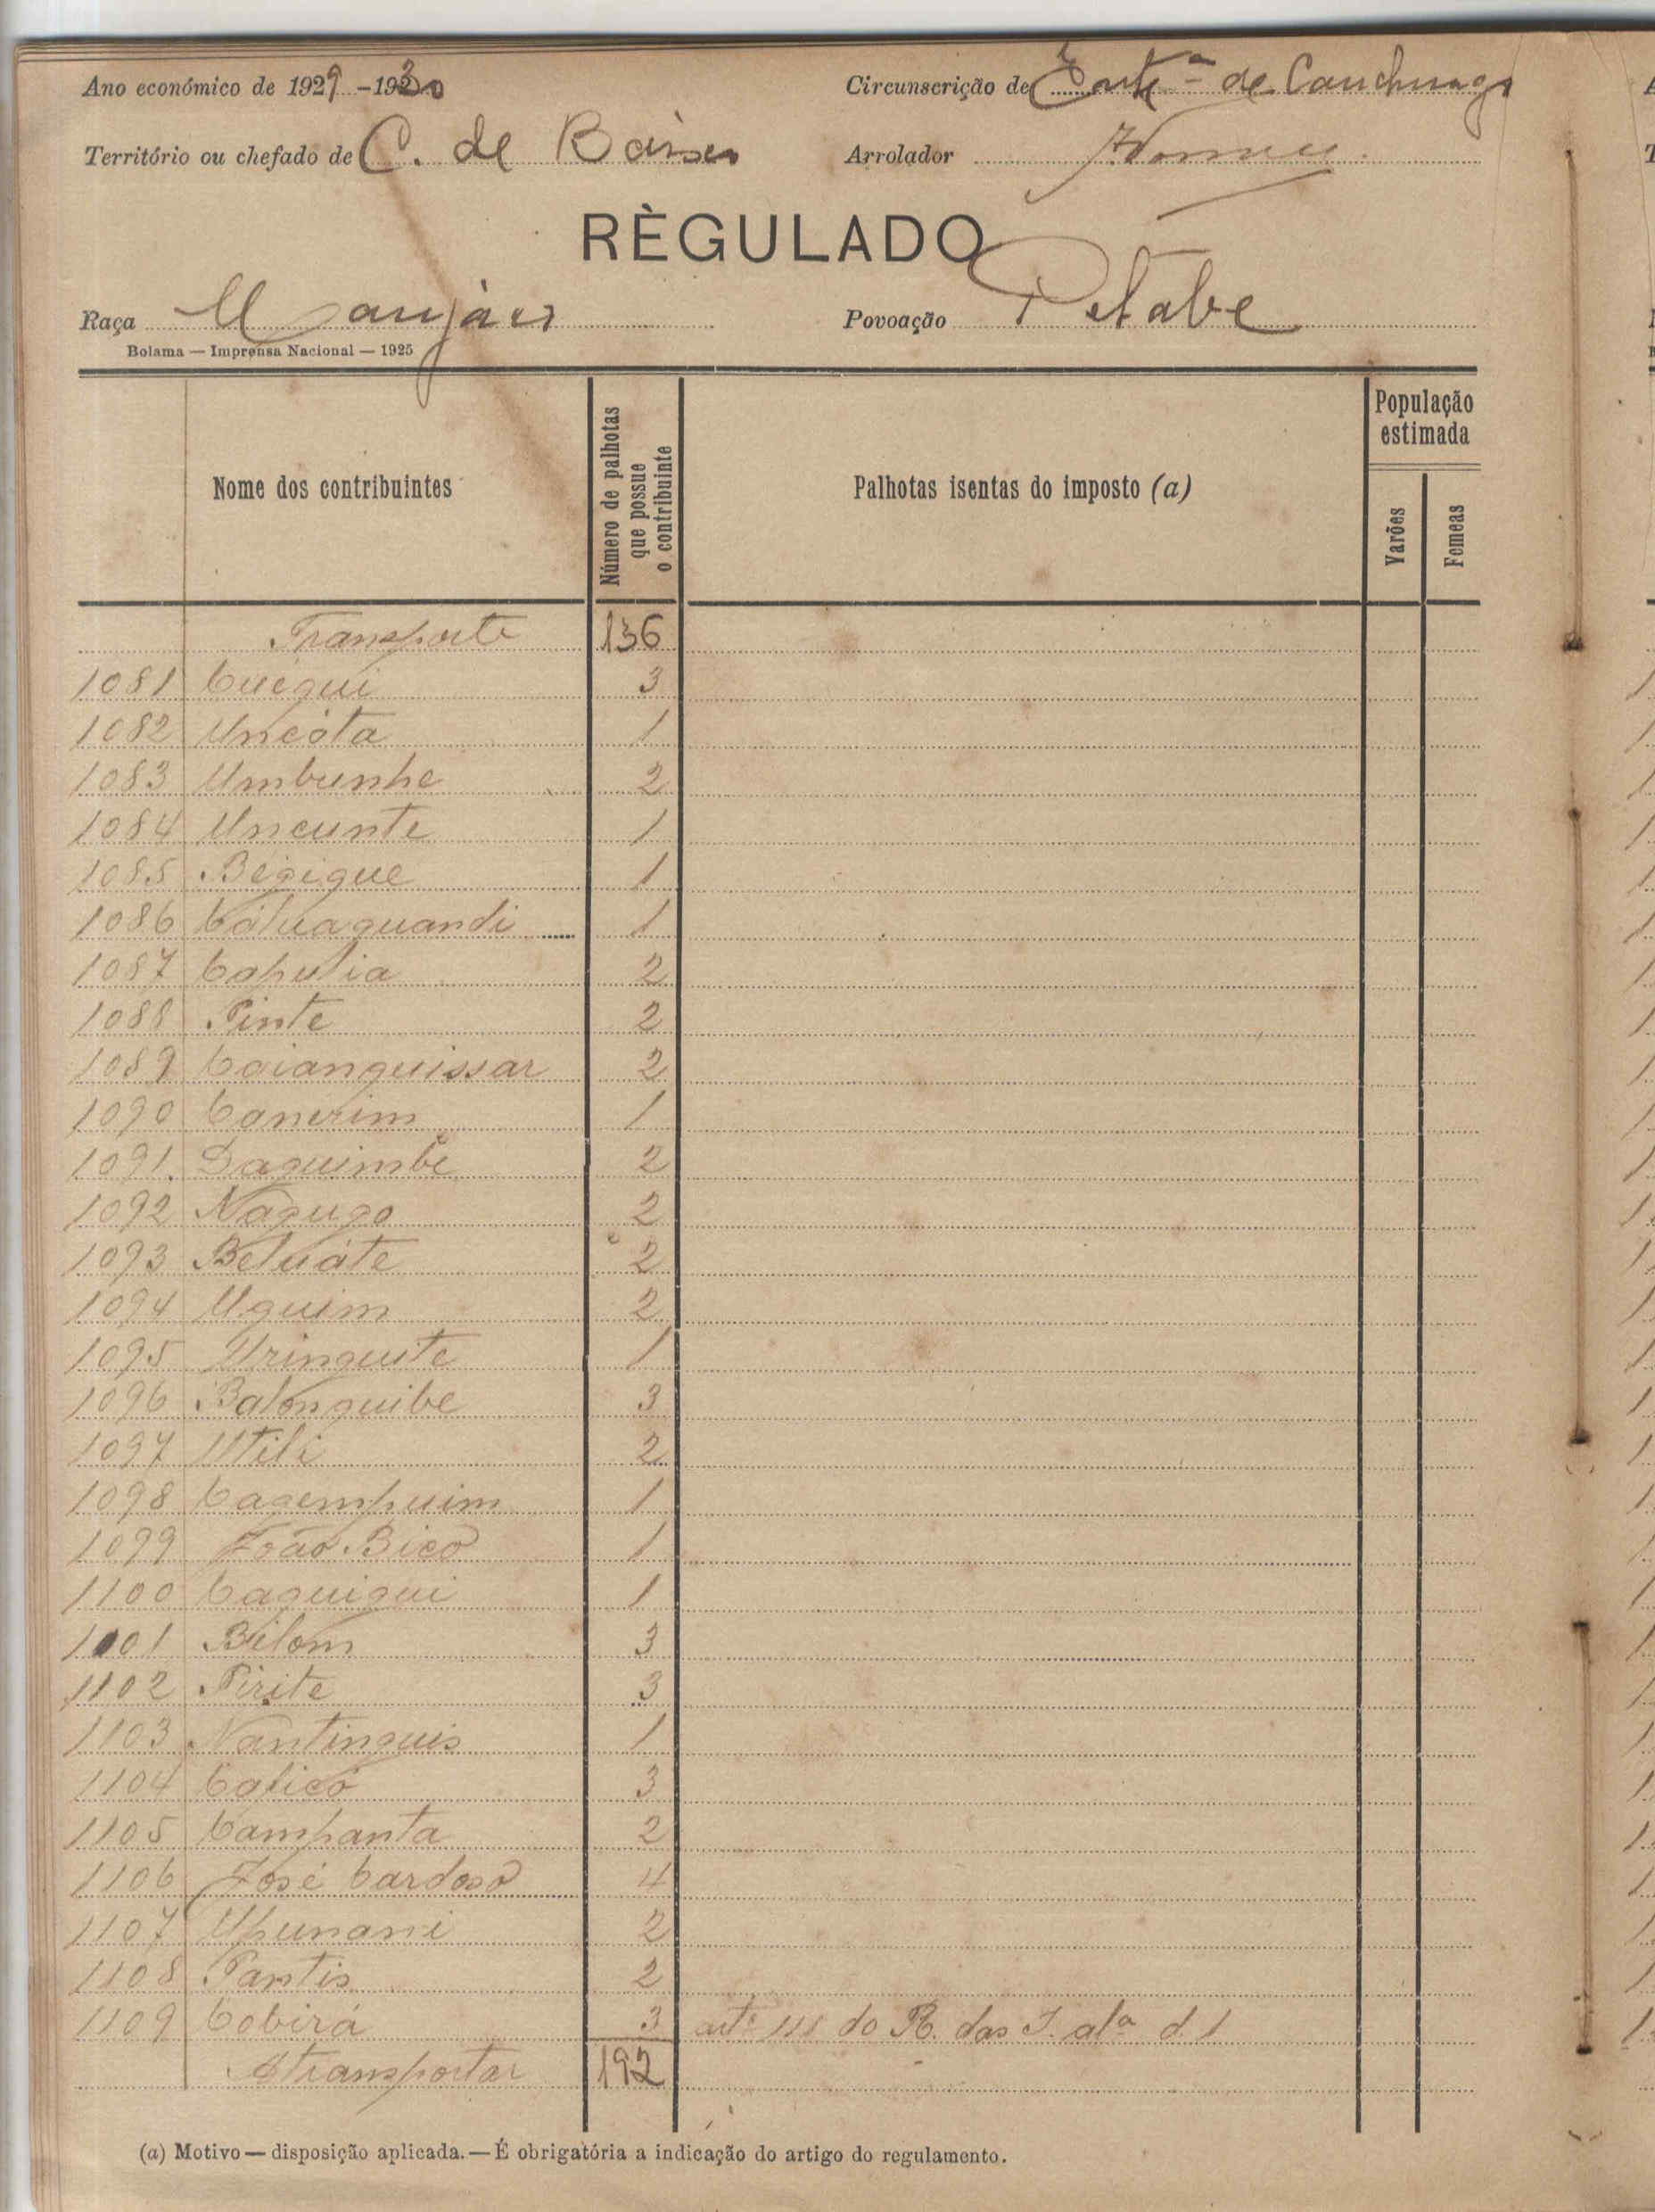 Ano económico de 1929-1930 Circunscrição de de Canchungo
Território ou chefado de C. de Arrolador
RÈGULADO
Raça Manjáco Povoação Petabe
Bolama — Imprensa Nacional — 1925
Nome dos contribuintes Número de palhotas que possue o contribuinte Palhotas isentas do imposto (a) População estimada Varões Femeas
Transporte 136
1081 Cuegui 3
1082 Uncóta 1
1083 Umbunhe 2
1084 Uncunte 1
1085 Begigue 1
1086 Cátuaguandi 1
1087 Capulia 2
1088 Pinte 2
1089 Caianguissar 2
1090 Canerim 1
1091 Daguimbe 2
1092 Nagugo 2
1093 Betuáte 2
1094 Uguim 2
1095 Uringuite 1
1096 Balonguibe 3
1097 Utili 2
1098 Cagempuim 1
1099 João Bico 1
1100 Caguigui 1
1001 Bilom 3
1102 Pirite 3
1103 Nantinguis 1
1104 Calicó 3
1105 Campanta 2
1106 José Cardoso 4
1107 Upunani 2
1108 Pantis 2
1109 Cobirá 3 artº 111 do R. das
A transportar 192
(a) Motivo — disposição aplicada. — É obrigatória a indicação do artigo do regulamento.